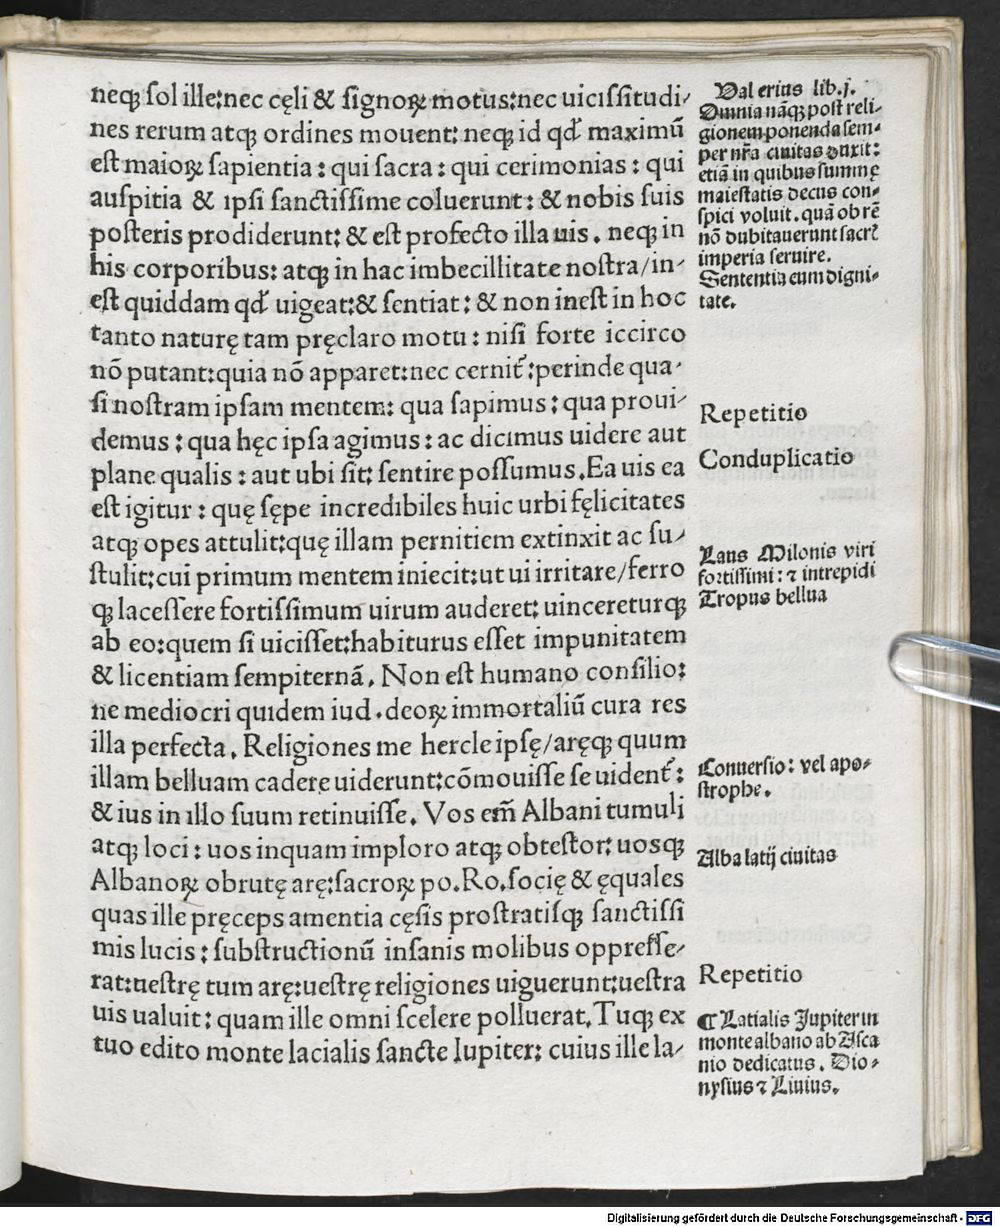 neqꝫ ſol ille:nec cęli & ſignoꝝ motus:nec uiciſſitudi⸗
nes rerum atqꝫ ordines mouent: neqꝫ id qd̛ maximū
eſt maioꝝ ſapientia : qui ſacra : qui cerimonias : qui
auſpitia & ipſi ſanctiſſime coluerunt : & nobis ſuis
poſteris prodiderunt: & eſt profecto illa uis . neqꝫ in
his corporibus: atqꝫ in hac imbecillitate noſtra/in⸗
eſt quiddam qd̛ uigeat:& ſentiat : & non ineſt in hoc
tanto naturę tam pręclaro motu : niſi forte iccirco
nō putant:quia nō apparet:nec cernit᷑:perinde qua⸗
ſi noſtram ipſam mentem: qua ſapimus : qua proui⸗
demus : qua hęc ipſa agimus : ac dicimus uidere aut
plane qualis : aut ubi ſit: ſentire poſſumus.Ea uis ea
eſt igitur : quę ſępe incredibiles huic urbi fęlicitates
atqꝫ opes attulit:quę illam pernitiem extinxit ac ſu⸗
ſtulit:cui primum mentem iniecit:ut ui irritare/ferro
qꝫ laceſſere fortiſſimum uirum auderet: uincereturqꝫ
ab eo:quem ſi uiciſſet:habiturus eſſet impunitatem
& licentiam ſempiternā . Non eſt humano conſilio:
ne mediocri quidem iud .deoꝝ immortaliū cura res
illa perfecta . Religiones me hercle ipſę/aręqꝫ quum
illam belluam cadere uiderunt:cōmouiſſe ſe uident᷑ :
& ius in illo ſuum retinuiſſe . Vos em̄ Albani tumuli
atqꝫ loci : uos inquam imploro atqꝫ obteſtor: uosqꝫ
Albanoꝝ obrutę arę:ſacroꝝ po.Ro.ſocię & ęquales
quas ille pręceps amentia cęſis proſtratiſqꝫ ſanctiſſi
mis lucis : ſubſtructionū inſanis molibus oppreſſe⸗
rat:ueſtrę tum arę:ueſtrę religiones uiguerunt:ueſtra
uis ualuit : quam ille omni ſcelere polluerat.Tuqꝫ ex
tuo edito monte lacialis ſancte Iupiter: cuius ille la⸗
Val erius lib.j.
Omnia nāqꝫ poſt reli⸗
gionem ponenda ſem⸗
per nr̄a ciuitas duxit :
etiā in quibus ſummę
maieſtatis decus con⸗
ſpici voluit . quā ob rē
nō dubitauerunt ſacr᷑
imperia ſeruire.
Sententia cum digni⸗
tate.
Repetitio
Conduplicatio
Laus Milonis viri
fortiſſimi : ⁊ intrepidi
Tropus bellua
Conuerſio : vel apo⸗
ſtrophe .
Alba latij ciuitas
Repetitio
¶ Latialis Jupiter in
monte albano ab Aſca
nio dedicatus . Dio⸗
nyſius ⁊ Liuius.
Digitalisierung gefördert durch die Deutsche Forschungsgemeinschaft - DFG